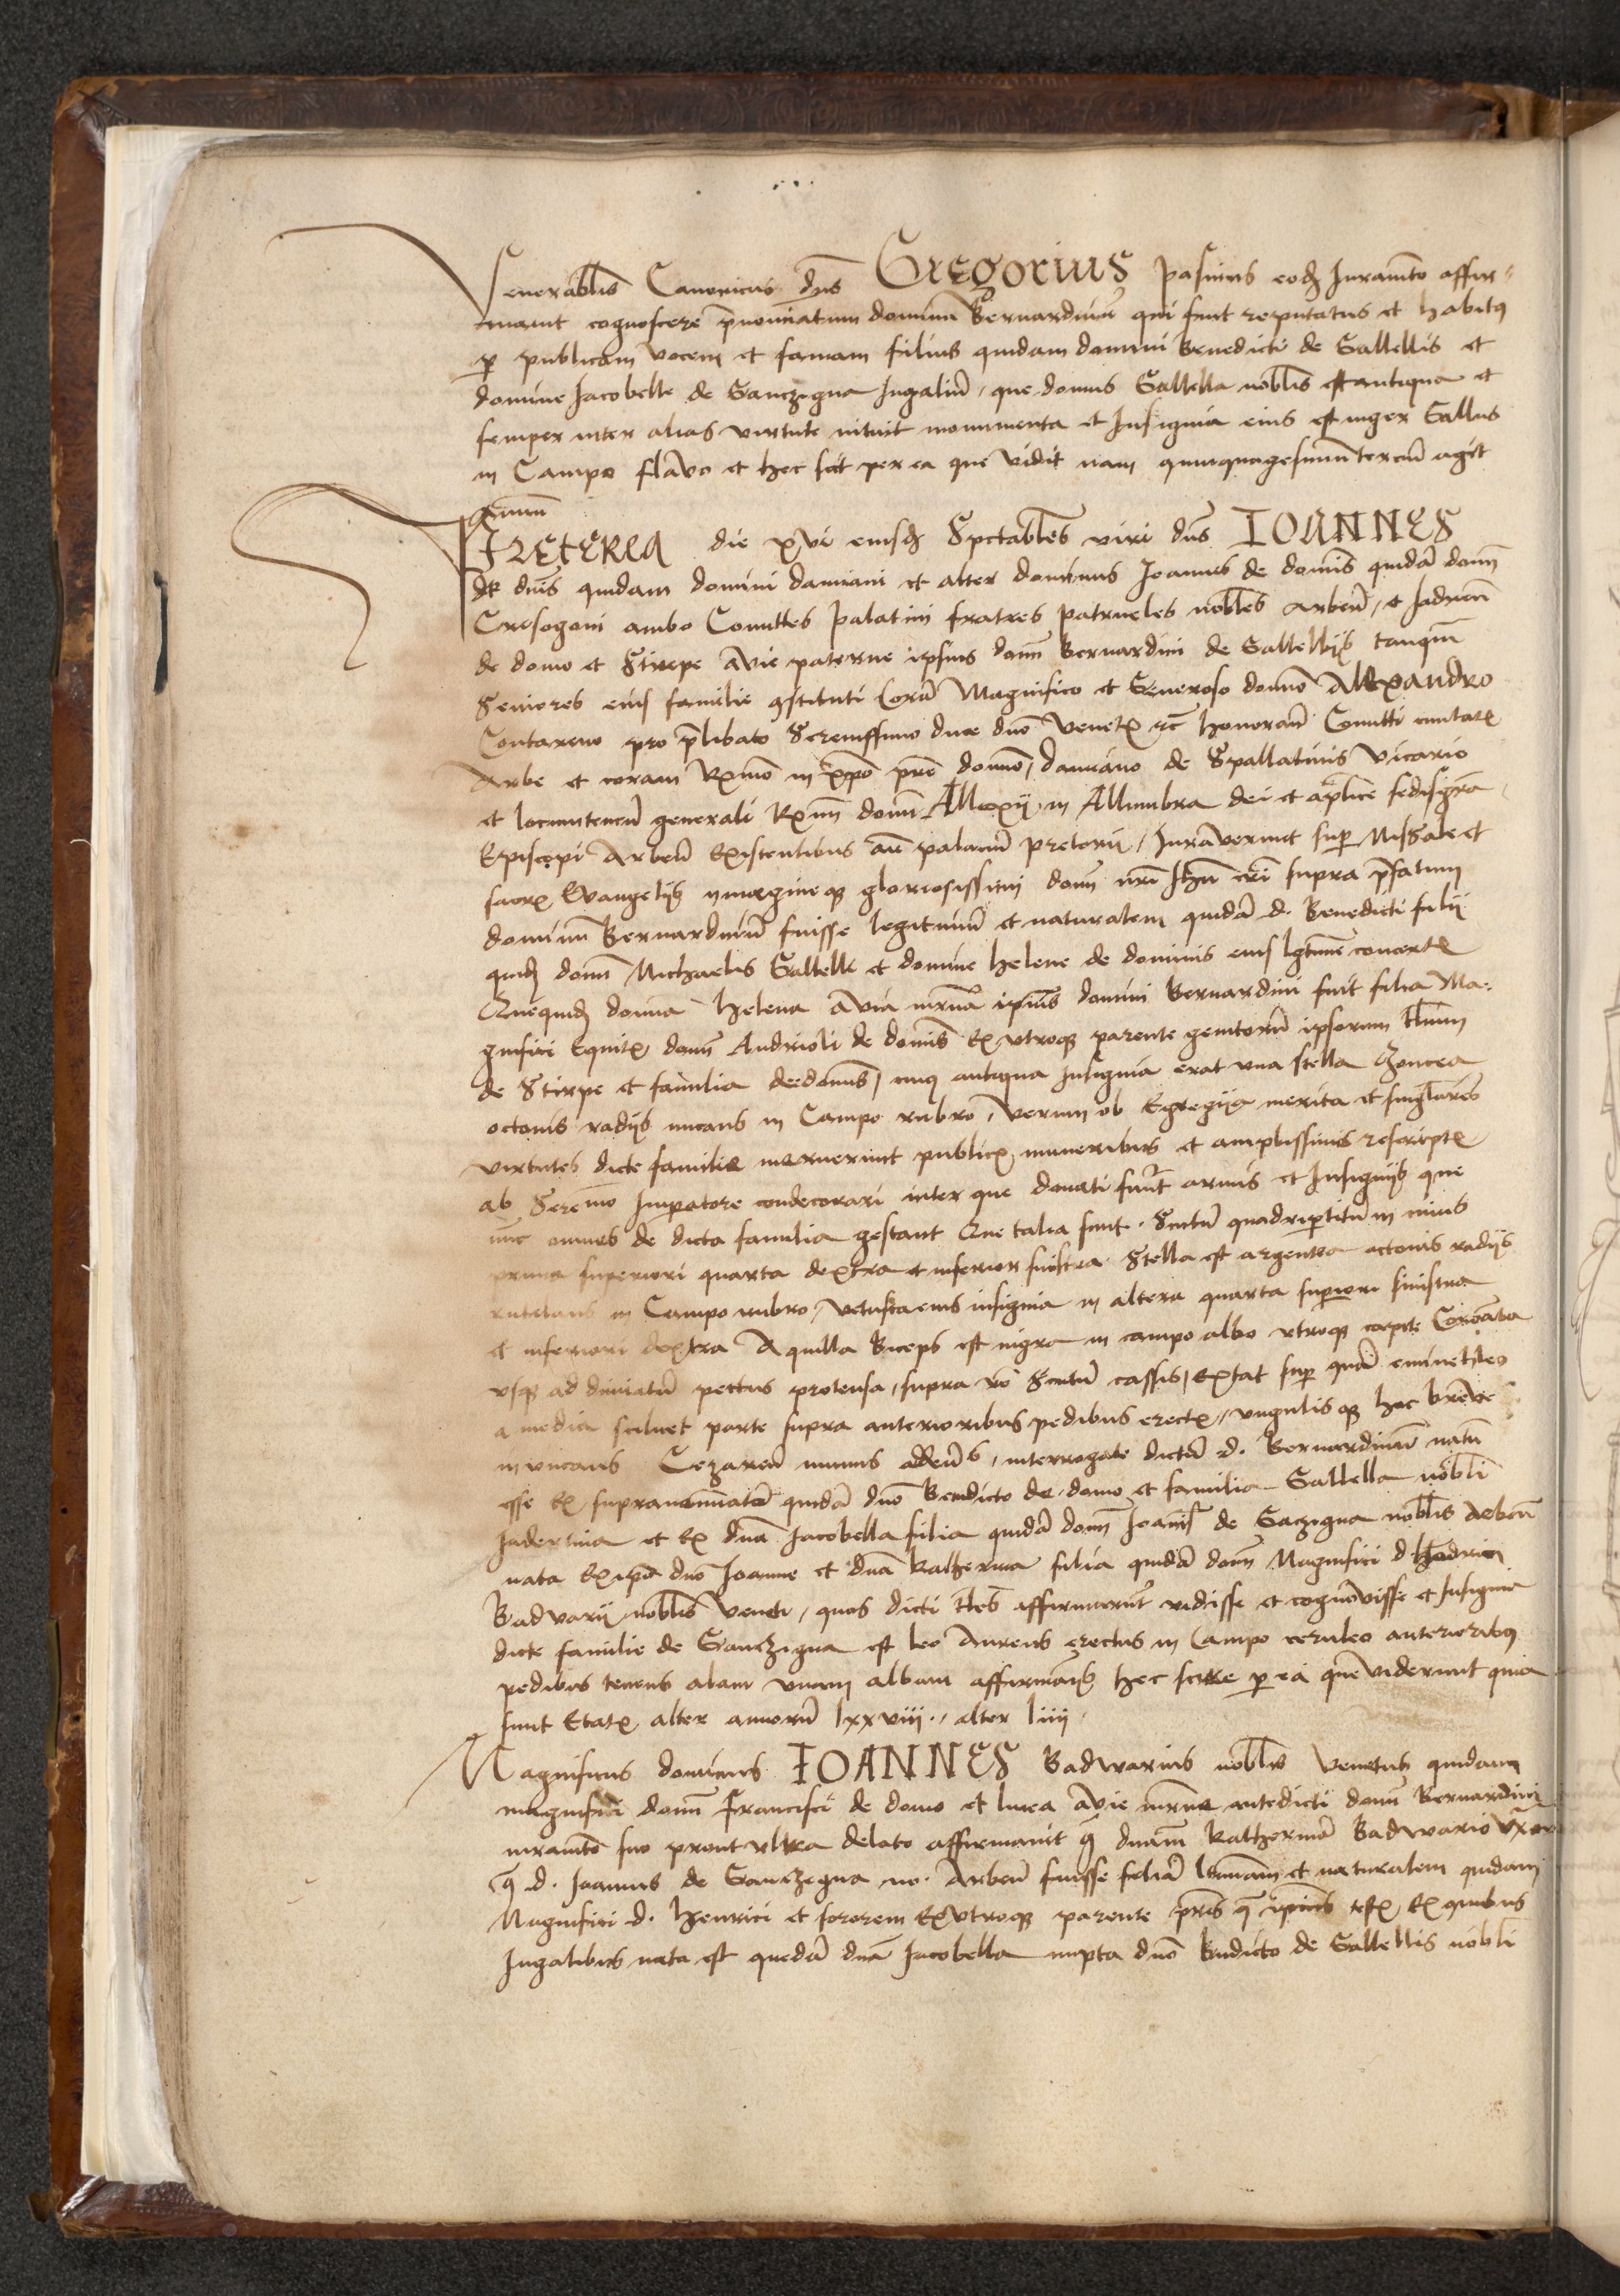 Venerablis Canonicus dns Gregorius Pasinus eodz Juramto affir-
mavit cognoscere prenominatum dominum Bernardinum qui fuit reputatus et habitus
per publicam vocem et famam filius quidam domini Benedicti de Gallellis et
domine Jacobelle de Ganczigna Jugalium, que domus Gallella noblis est antiqua et
semper inter alias virtute nituit monumenta et Insignia eius est niger Gallus
in Campo flavo et hec scit per ea que vidit nam quinquagesimum tercium agit
annum
PRETEREA die xvi eiusdz Spectabiles viri dns IOANNES
de dnis quidam domini damiani et alter dominus Joannes de dominis quidam domini
Crisogoni ambo Comittes palatini fratres patrueles nobles Arbens, et Jadrens
de domo et Stirpe Avie paterne ipsius domini Bernardini de Gallellijs tanquam
Seniores eius familie constituti Coram Magnifico et Generoso domino Alexandro
Contareno pro prelibato Serenissimo duce dno Venetz etc honorando Comitti civitatis
Arbe et coram Rxmo in xpo pre domino, damiano de Spallatinis Vicario
et locumtenente generali Rxmi domini Alloxij in Allumbra dei et aplice sedis gra
Episcopi Arbens Existentibus ante palacium pretorii, Juraverunt super Missale et
sacrz Evangelijs ymagineqz gloriosissimi domini nri Jhu cri supra prefatum
dominum Bernardinum fuisse legitimum et naturalem quidam d. Benedicti filii
quidz domini Michaelis Gallelli et domine helene de dominis eius lgtime consortz
Quequidz domina helena Avia ipsius domini Bernardini fuit filia Ma-
gnifici Equitz domini Andrioli de dominis Ex utroqz parente genitorum ipsorum
de Stirpe et familia de dominis, cuius antiqua Insignia erat una stella
octonis radijs micans in Campo rubro, Verum ob Egregija merita et singulares
virtutes dicte familie meruerunt publicz muneribus et amplissimis rescriptz
ab Seremo Imperatore condecorari inter que donati sunt armis et Insignijs que
nunc omnes de dicta familia gestant Que talia sunt. Scutum quadripertitum in cuius
prima superiori quarta dextra et inferiori sinistra Stella est argentea octonis radijs
rutilans in Campo rubro, Vetusta eius insignia in altera quarta superiori sinistra
et inferiori dextra Aquilla Biceps est nigra in campo albo utroqz capite Coronata
usqz ad dimiatum pectus protensa, supra vero Scutum cassis, Extat super quam eminet leo
a media scilicet parte supra anterioribus pedibus erectz, ungulisqz hoc breve
Cezareum munus, interrogate dictum d. Bernardinum natum
esse Ex supranominatum quidam dno Bendicto de domo et familia Gallella nobli
Jadertina et Ex dna Jacobella filia quidam domini Joannis de Gaczigna noblis Arbens
nata Ex ipso dno Joanne et dna Katherina filia quidam domini Magnifici d. Hendrici
Badvarij noblis Veneti, quos dicti affirmarunt vidisse et cognovisse et Insignia
dicte familie de Ganczigna est leo Aureus erectus in Campo ceruleo anterioribus
pedibus tenens alam unam albam affirmantes hec scire per ea que viderunt quia
sunt Etatz alter annorum lxxviii., alter liiii.
Magnificus dominus IOANNES Badwarius noblis Venetus quidam
magnifici domini Francisci de domo et linea Avie antedicti domini Bernardini
iuramto suo prout ultra delato affirmavit dnam Katherinam Badwario Uxor
d. Joannis de Ganczegna no. Arbens fuisse filiam et naturalem quidam
Magnifici d. Henrici et sororem Exutroqz parente Ex quibus
Jugalibus nata est quedam dna Jacobella nupta dno Bndicto de Gallellis nobli